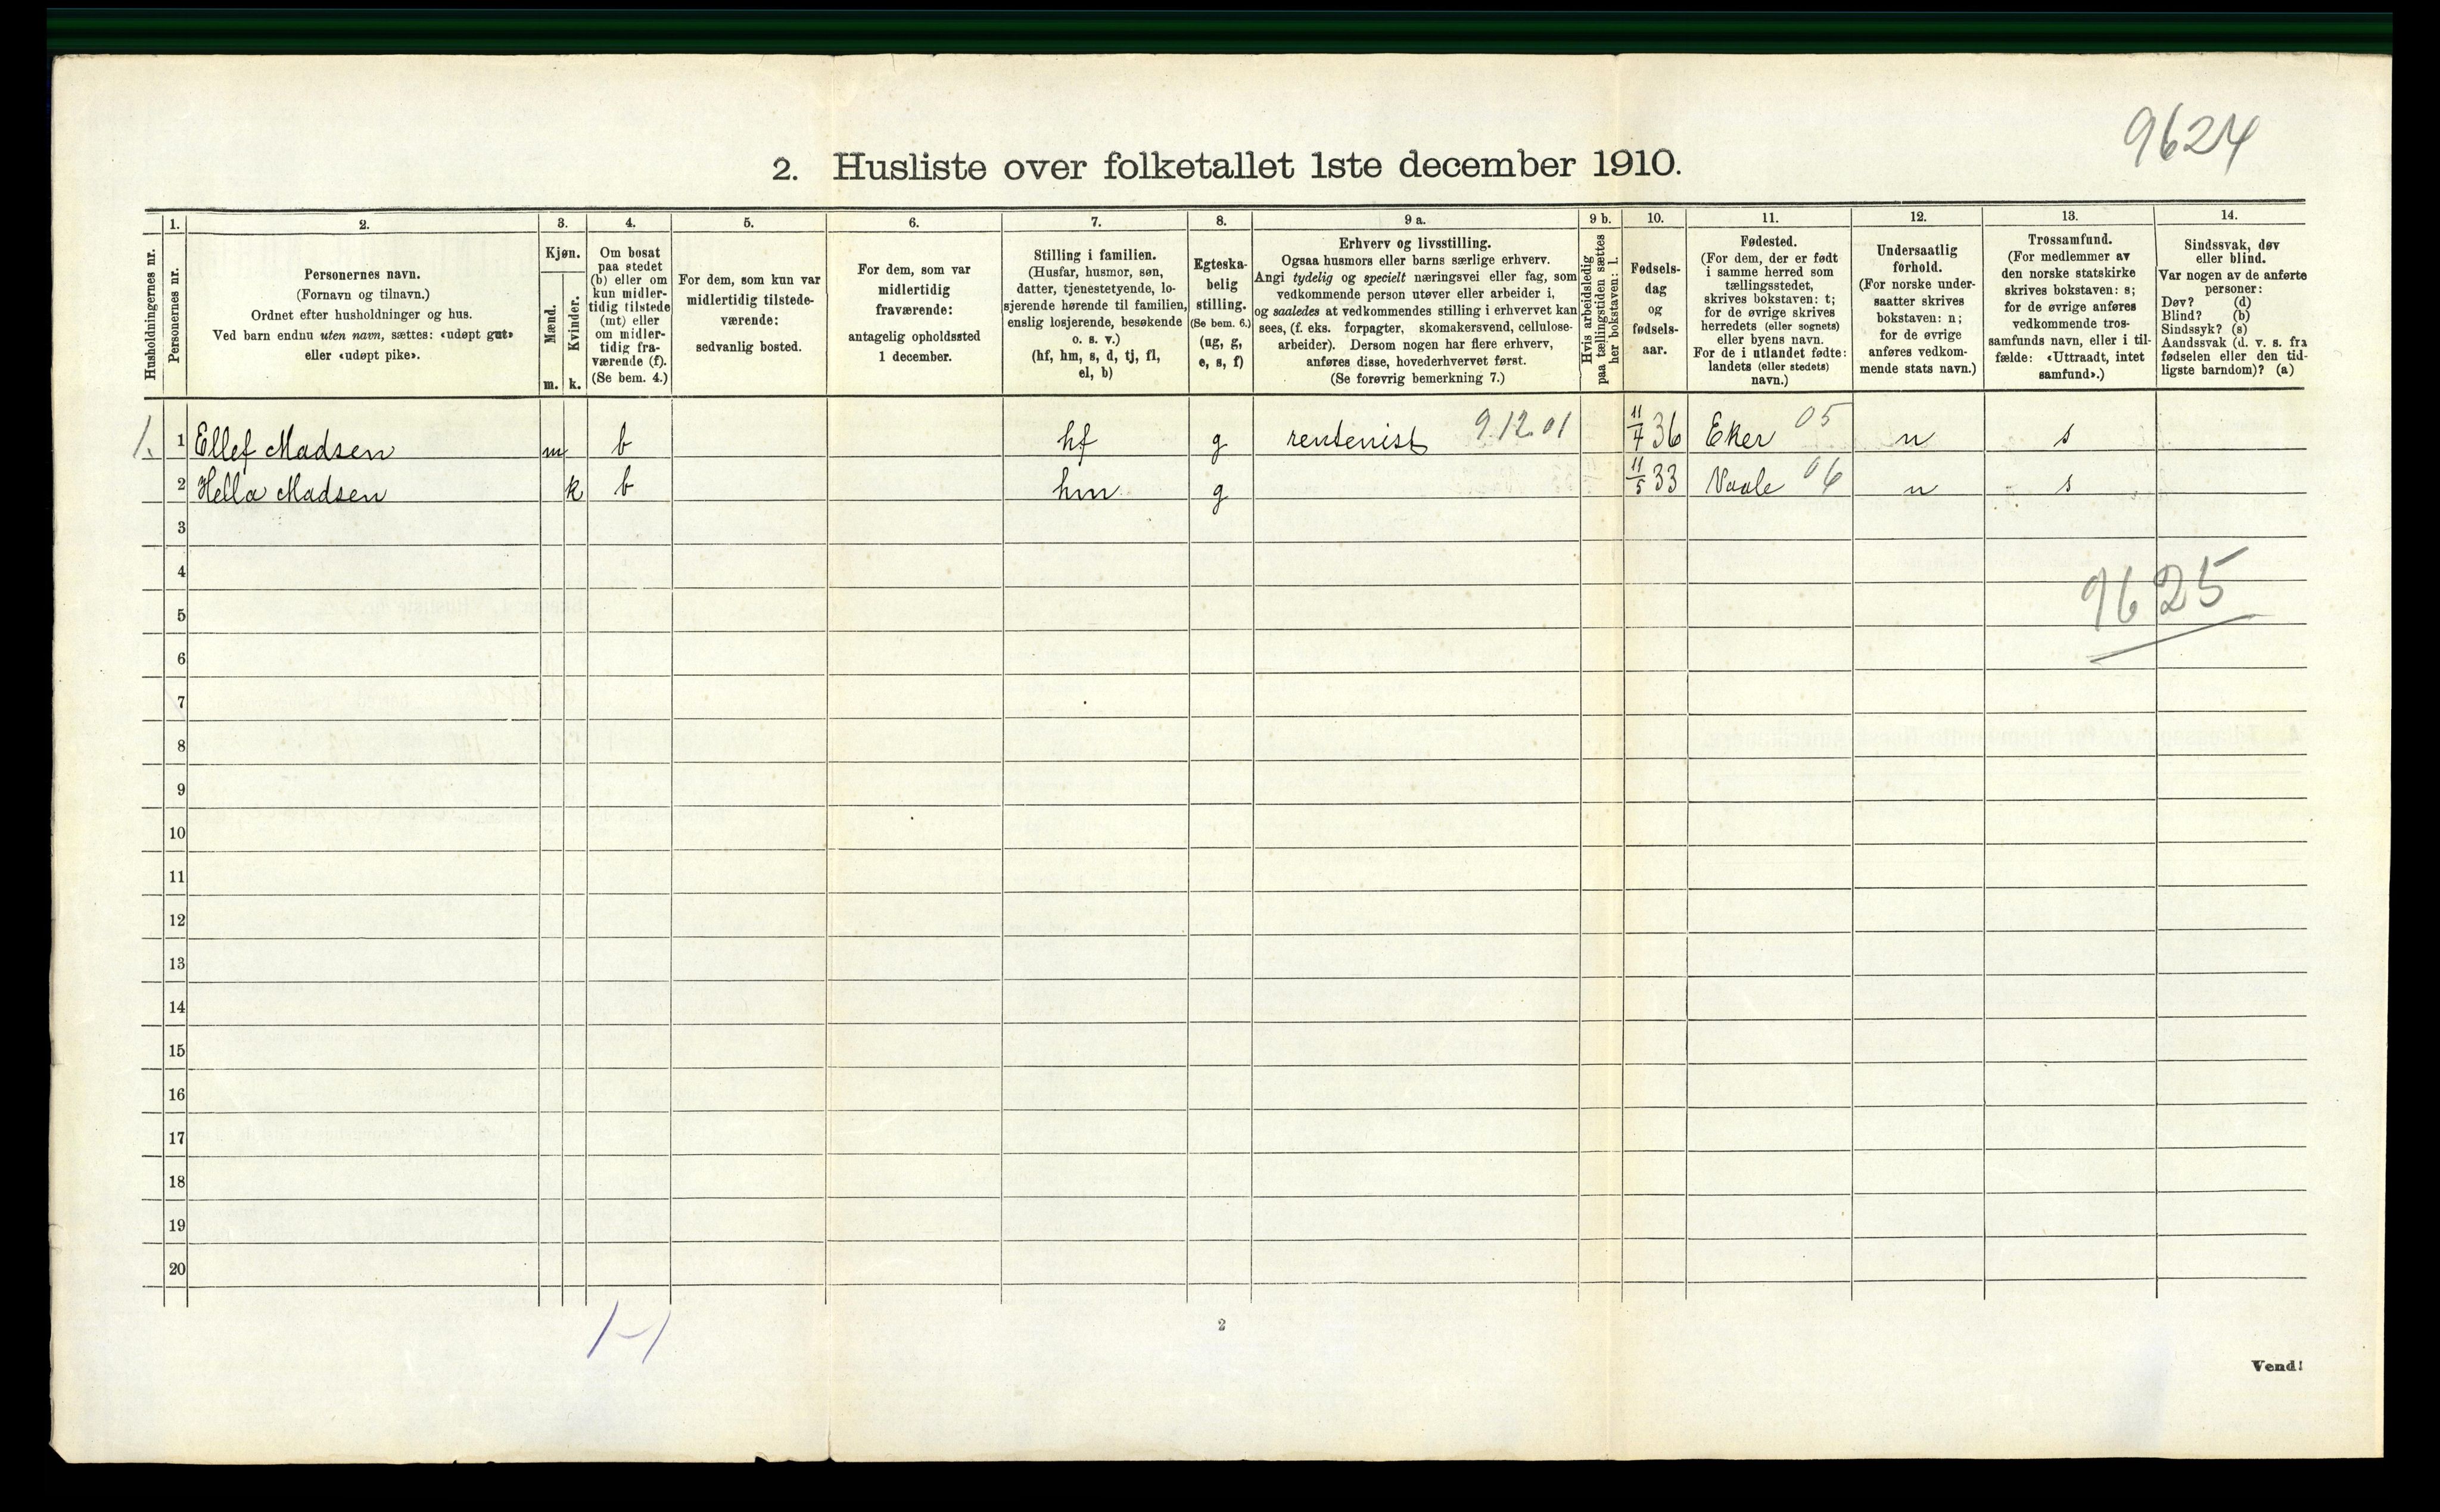 9624
2. Husliste over folketallet 1ste december 1910.
Husholdningernes nr.
1.
Personernes nr.
2.
Personernes navn.
(Fornavn og tilnavn.)
Ordnet efter husholdninger og hus.
Ved barn endnu uten navn, sættes: «udøpt gut»
eller «udøpt pike».
3.
Kjøn.
Mænd.
m.
Kvinder.
k.
4.
Om bosat
paa stedet
(b) eller om
kun midler-
tidig tilstede
(mt) eller
om midler-
tidig fra-
værende (f).
(Se bem. 4.)
5.
For dem, som kun var
midlertidig tilstede-
værende:
sedvanlig bosted.
6.
For dem, som var
midlertidig
fraværende:
antagelig opholdssted
1 december.
7.
Stilling i familien.
(Husfar, husmor, søn,
datter, tjenestetyende, lo-
sjerende hørende til familien,
enslig losjerende, besøkende
o. s. v.)
(hf, hm, s, d, tj, fl,
el, b)
8.
Egteska-
belig
stilling.
(Se bem. 6.)
(ug, g,
e, s, f)
9 a.
Erhverv og livsstilling.
Ogsaa husmors eller barns særlige erhverv.
Angi tydelig og specielt næringsvei eller fag, som
vedkommende person utøver eller arbeider i,
og saaledes at vedkommendes stilling i erhvervet kan
sees, (f. eks. forpagter, skomakersvend, cellulose-
arbeider). Dersom nogen har flere erhverv,
anføres disse, hovederhvervet først.
(Se forøvrig bemerkning 7.)
9 b.
Hvis arbeidsledig
paa tællingstiden sættes
her bokstaven: l.
10.
Fødsels-
dag
og
fødsels-
aar.
11.
Fødested.
(For dem, der er født
i samme herred som
tællingsstedet,
skrives bokstaven: t;
for de øvrige skrives
herredets (eller sognets)
eller byens navn.
For de i utlandet fødte:
landets (eller stedets)
navn.)
12.
Undersaatlig
forhold.
(For norske under-
saatter skrives
bokstaven: n;
for de øvrige
anføres vedkom-
mende stats navn.)
13.
Trossamfund.
(For medlemmer av
den norske statskirke
skrives bokstaven: s;
for de øvrige anføres
vedkommende tros-
samfunds navn, eller i til-
fælde: «Uttraadt, intet
samfund».)
14.
Sindssvak, døv
eller blind.
Var nogen av de anførte
personer:
Døv? (d)
Blind? (b)
Sindssyk? (s)
Aandssvak (d. v. s. fra
fødselen eller den tid-
ligste barndom)? (a)
1. 1 Ellef Madsen m b hf g rentenist 9.12.01 11/7 36 Eker 05 n s
2 Hella Madsen k b hm g 11/5 33 Vaale 06 n s
3
4
9625
5
6
7
8
9
10
11
12
13
14
15
16
17
18
19
20
1-1
2
Vend!